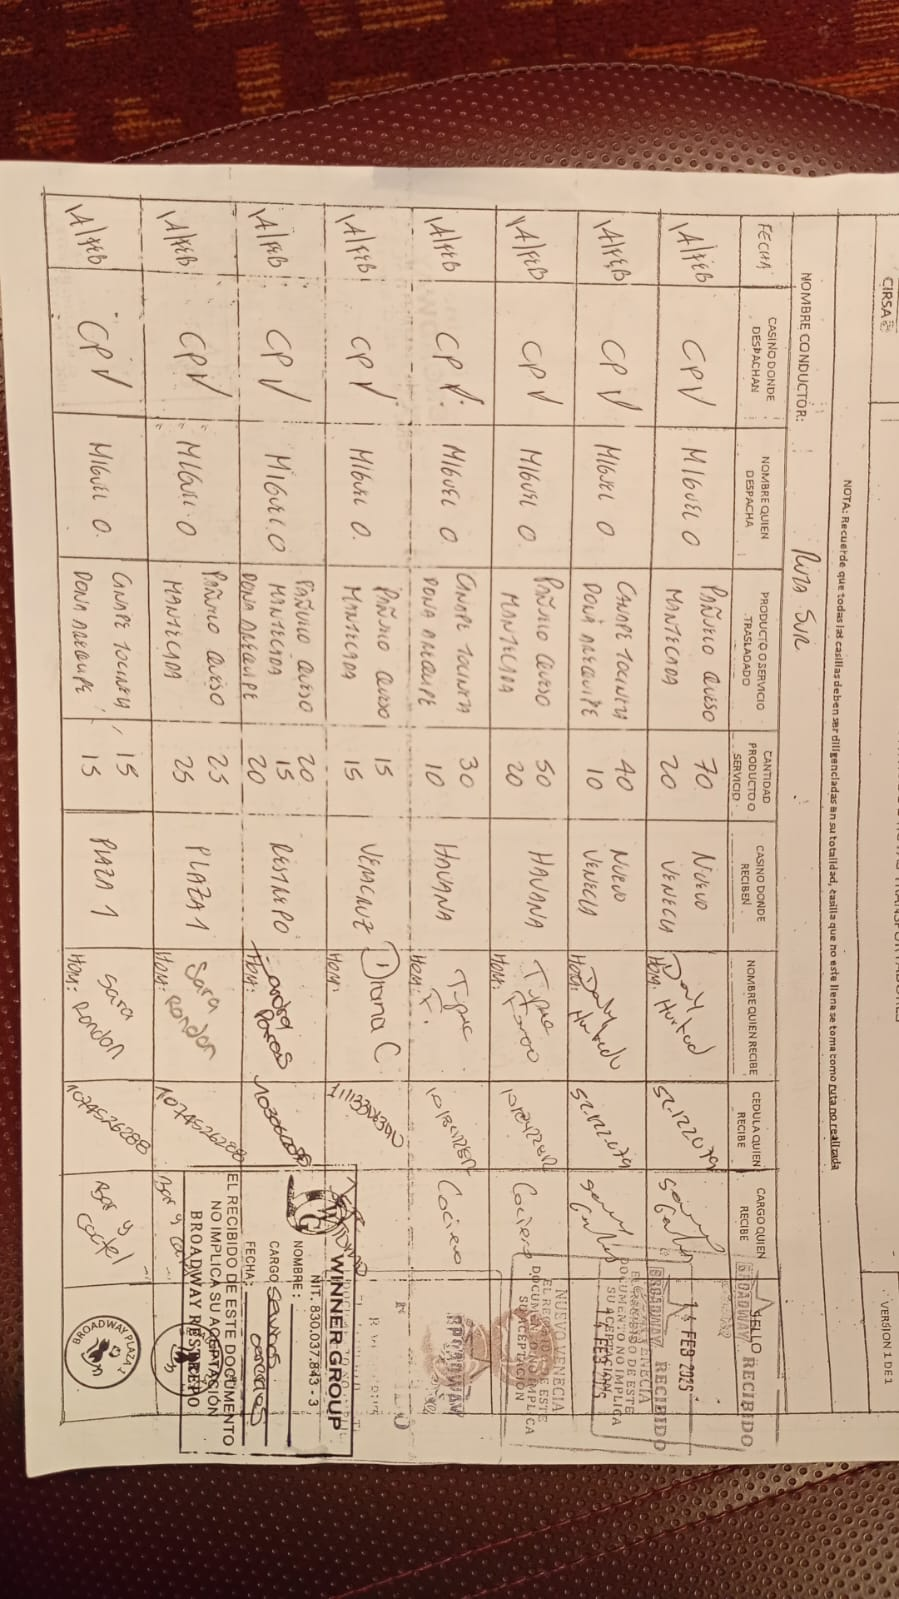 CIRSA
VERSION 1 DE 1
NOTA: Recuerde que todas las casillas deben ser diligenciadas en su totalidad, casilla que no este llena se toma como ruta no realizada
NOMBRE CONDUCTOR: RUTA SUR
FECHA
CASINO DONDE DESPACHAN
NOMBRE QUIEN DESPACHA
PRODUCTO O SERVICIO TRASLADADO
CANTIDAD PRODUCTO O SERVICIO
CASINO DONDE RECIBEN
NOMBRE QUIEN RECIBE
CEDULA QUIEN RECIBE
CARGO QUIEN RECIBE
SELLO
14/FEB CPV MIGUEL O PAÑUELO QUESO 70 NUEVO
MANTECADA 20 VENECIA
HOM: Hurtado 52122079
BROADWAY RECIBIDO
14 FEB 2025
14/FEB CPV MIGUEL O CANAPE TOCINETA 40 NUEVO
DONA AREQUIPE 10 VENECIA
HOM: Hurtado 52122079
BROADWAY RECIBIDO
NUEVO VENECIA
EL RECIBIDO DE ESTE
DOCUMENTO NO IMPLICA
SU ACEPTACION
14/FEB CPV MIGUEL O PAÑUELO QUESO 50 HAVANA
MANTECADA 20
HOM: Cocinero
NUEVO VENECIA
EL RECIBIDO DE ESTE
DOCUMENTO NO IMPLICA
SU ACEPTACION
14/FEB CPV. MIGUEL O CANAPE TOCINETA 30 HAVANA
DONA AREQUIPE 10
HOM: F. Cocinero
BROADWAY
14/FEB CPV MIGUEL O. PAÑUELO QUESO 15 VERACRUZ Diana C
MANTECADA 15
HOM:
14/FEB CPV MIGUEL O PAÑUELO QUESO 20 RESTREPO
MANTECADA 15
DONA AREQUIPE 20
HOM: Porras
WINNER GROUP
NIT. 830.037.843 - 3
NOMBRE:
CARGO:
FECHA:
EL RECIBIDO DE ESTE DOCUMENTO
NO IMPLICA SU ACEPTACIÓN
BROADWAY RESTREPO
14/FEB CPV MIGUEL O PAÑUELO QUESO 25 PLAZA 1 Sara
MANTECADA 25
HOM: Rondon 1074526288 Bar y
14/FEB CPV MIGUEL O. CANAPE TOCINETA 15 PLAZA 1 Sara
DONA AREQUIPE 15
HOM: Rondon 1074526288 Bar y
Coctel
BROADWAY PLAZA 1